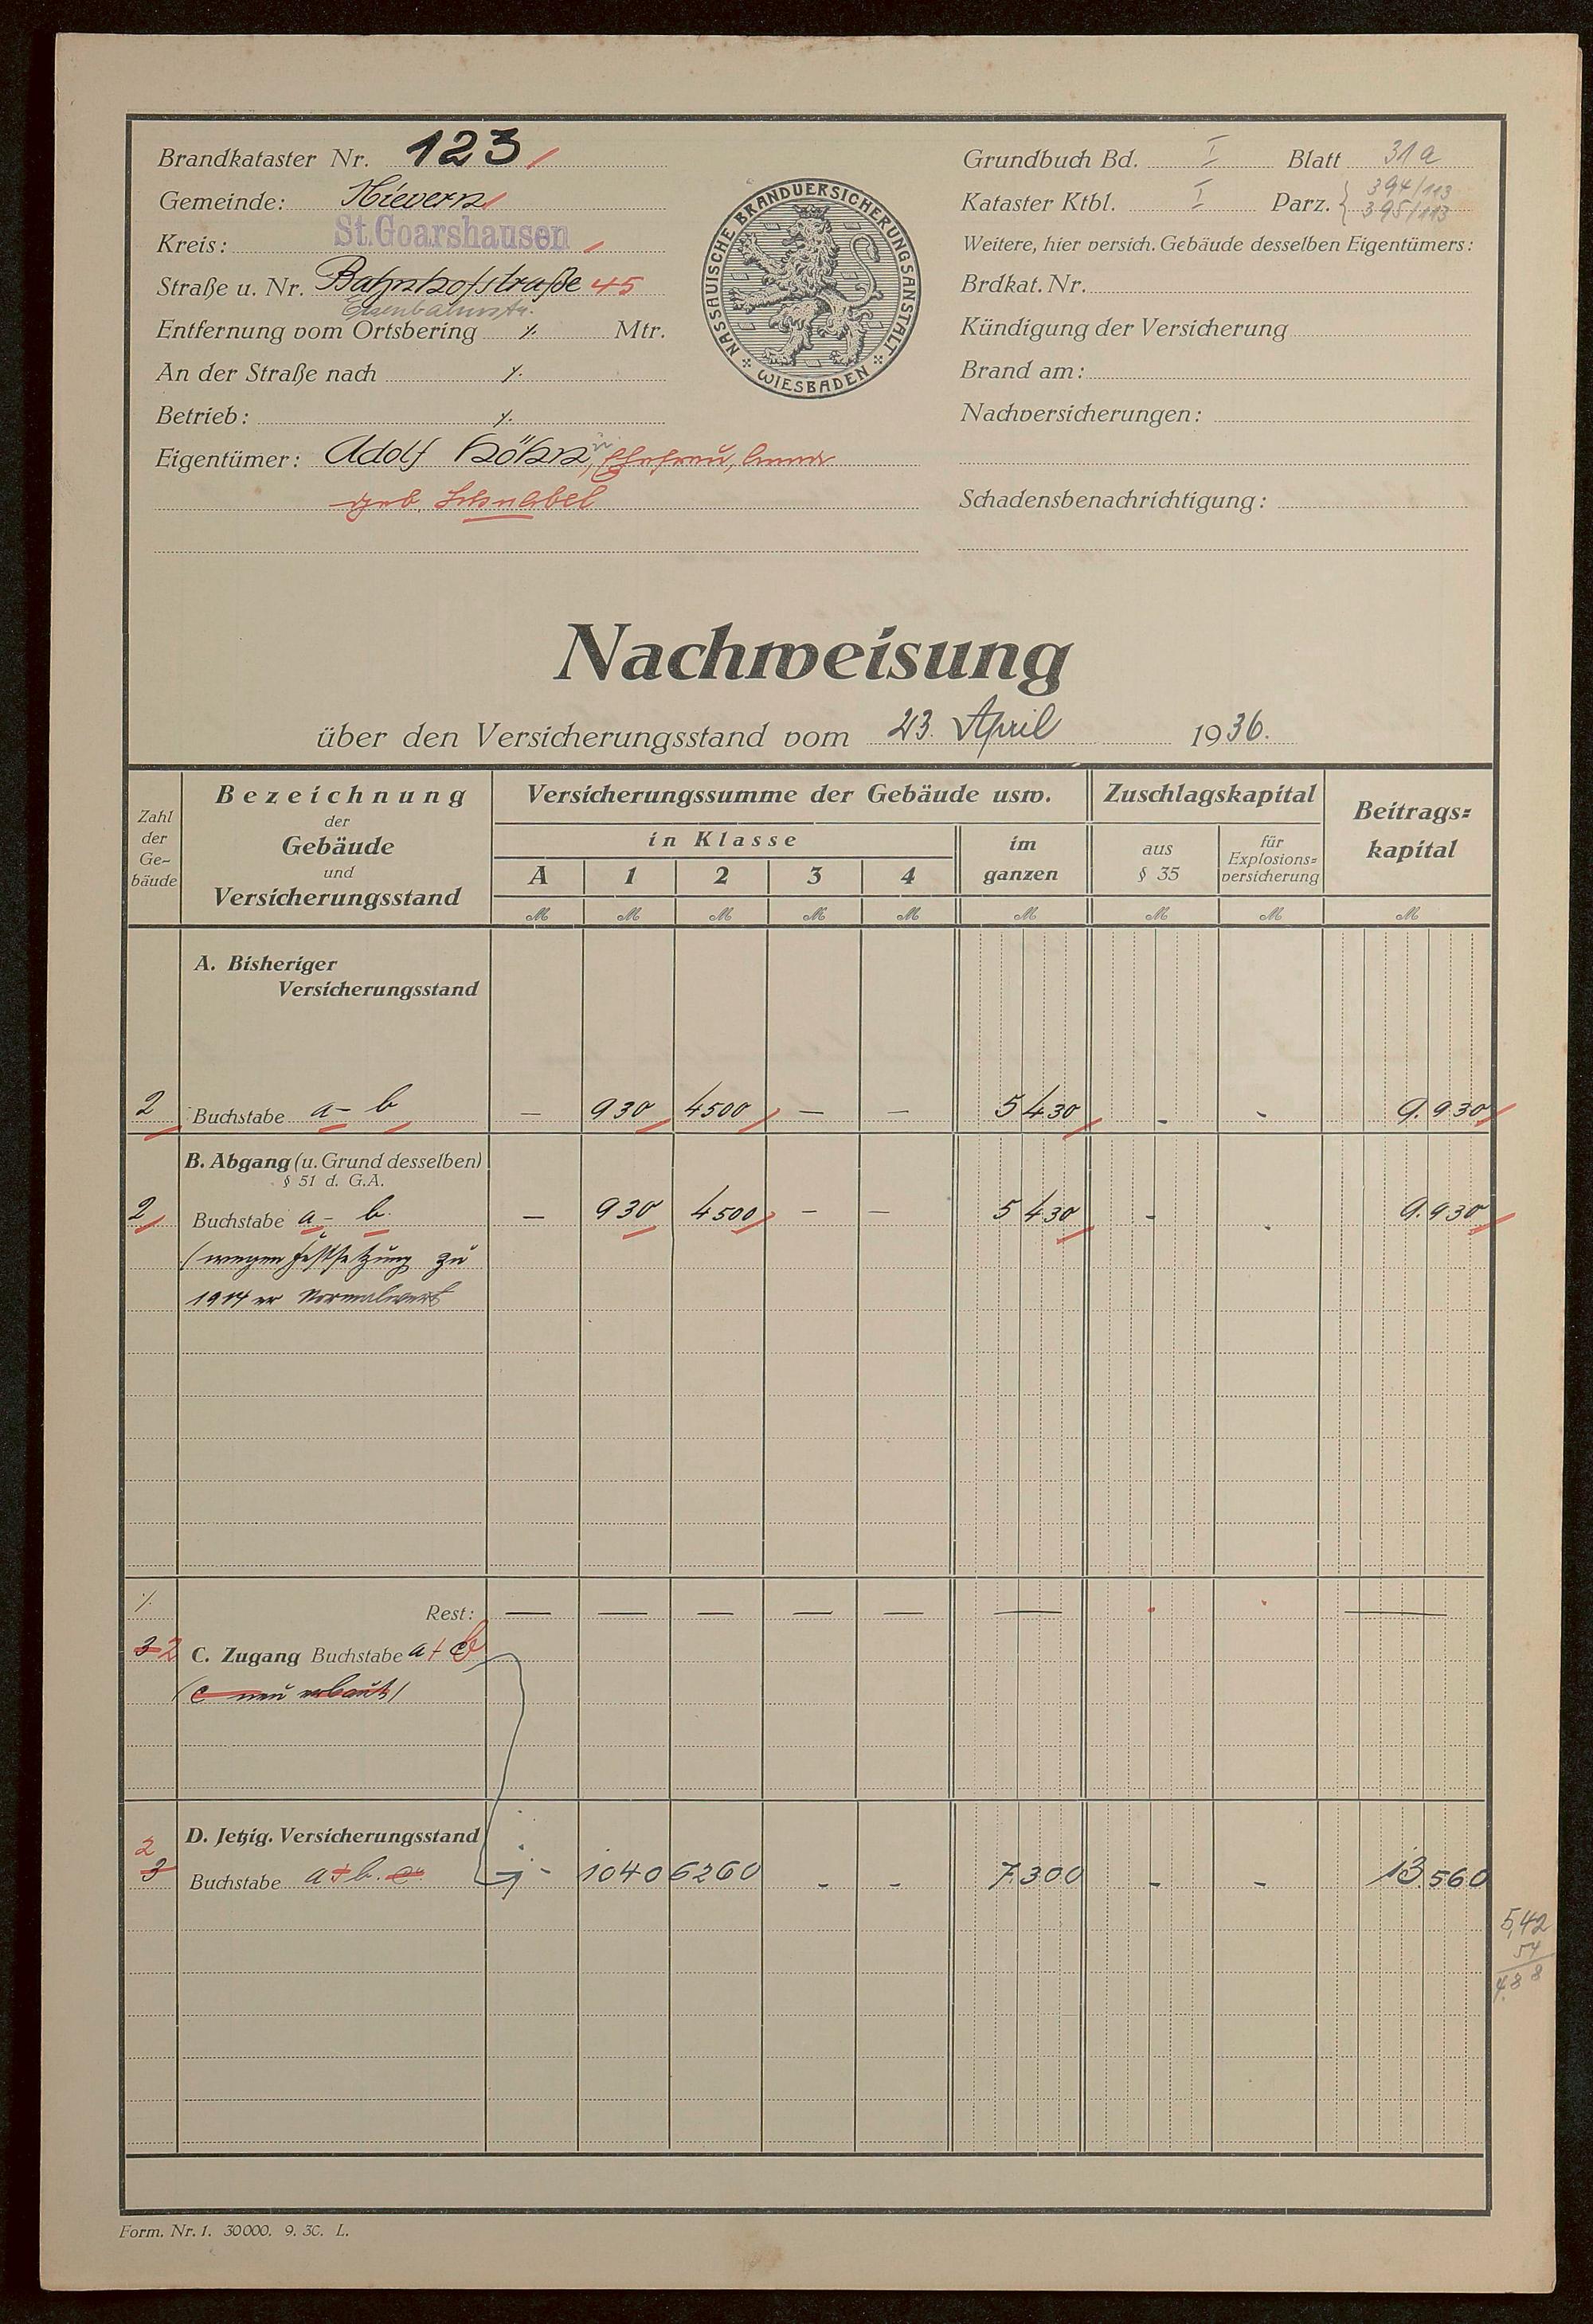 Brandkataster Nr. 123
Gemeinde: Nievern
Kreis: St. Goarshausen
Straße u. Nr. Bahnhofstraße 45
Eisenbahnstr.
Entfernung vom Ortsbering ⁒ Mtr.
An der Straße nach ⁒
Betrieb: ⁒
Eigentümer: Adolf Höhn, u. Ehefrau,
geb. Schnabel
NASSAUISCHE BRANDVERSICHERUNGSANSTALT
WIESBADEN
Grundbuch Bd. I Blatt 31a
Kataster Ktbl. I Parz. { 394/113
395/113
Weitere, hier versich. Gebäude desselben Eigentümers:
Brdkat. Nr.
Kündigung der Versicherung
Brand am:
Nachversicherungen:
Schadensbenachrichtigung:
Nachweisung
über den Versicherungsstand vom 23. April 1936.
Zahl der Ge-bäude
Bezeichnung der Gebäude und Versicherungsstand
Versicherungssumme der Gebäude usw.
in Klasse
A 1 2 3 4
im ganzen
Zuschlagskapital
aus § 35
für Explosions-versicherung
Beitrags-kapital
M M M M M M M M M
A. Bisheriger
Versicherungsstand
2 Buchstabe a - b — 930 4500 — — 5430 - - 9.930
B. Abgang (u. Grund desselben)
§ 51 d. G.A.
2 Buchstabe a - b. — 930 4500 — — 5430 - - 9.930
(wegen Festsetzung zu
1914er Normalwert
⁒ Rest: — — — — — — —
3 2 C. Zugang Buchstabe a + b
(c neu erbaut)
D. Jetzig. Versicherungsstand
2
3 Buchstabe a + b. c. - 1040 6260 - - 7.300 - - 13.560
5,42
54
4,88
Form. Nr. 1. 30000. 9. 30. L.